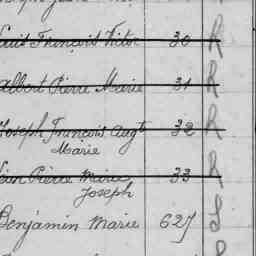 Louis François Victor 30 R
Albert Pierre Marie 31 R
Joseph François Augte 32 R
Marie
Jean Pierre Marie 33 R
Joseph
Benjamin Marie 627 S